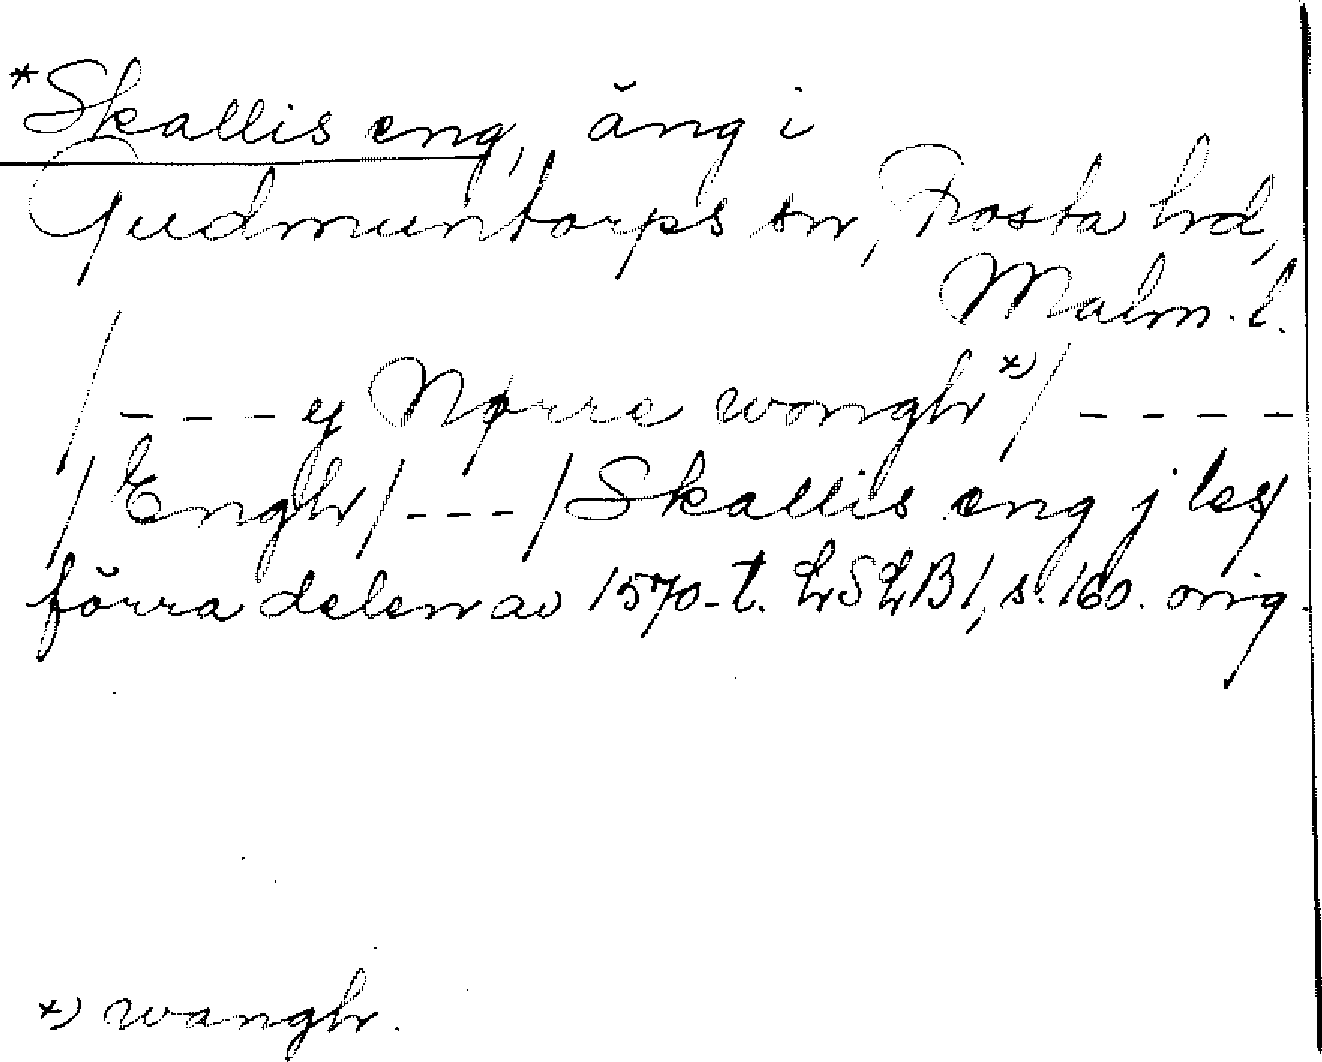 *Skallis eng, äng i
Gudmuntorps sn, Frosta hd,
Malm. l.
/ - - - ej Nørre wongh *) / - - - -
/ Engh / - - - / Skallis eng j les
förra delen av 1570-t. LSLB 1, s. 160. orig.
*) wangh.